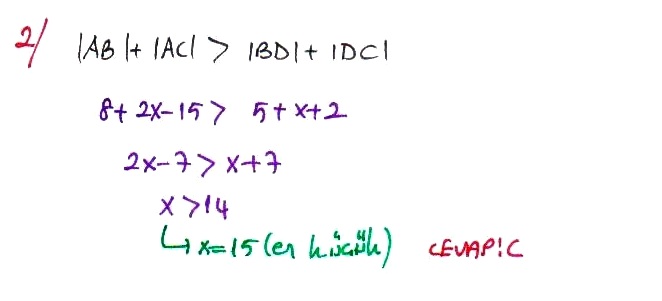 2/ |AB|+|AC| > |BD|+|DC|
8+2x-15 > 5+x+2
2x-7 > x+7
x>14
↳ x=15 (en küçük) CEVAP:C